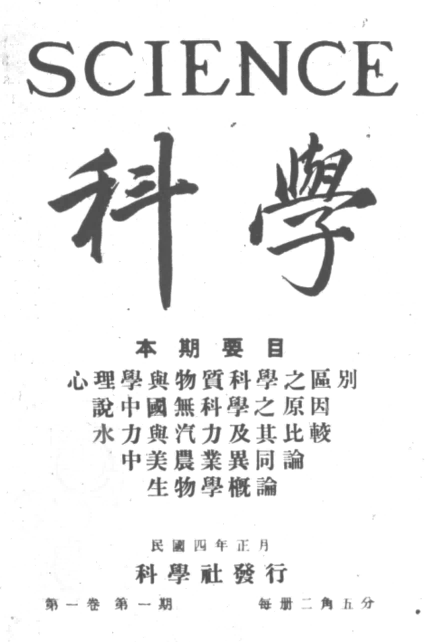 SCIENCE
科學
本期要目
心理學與物質科學之區別
說中國無科學之原因
水力與汽力及其比較
中美農業異同論
生物學概論
民國四年正月
科學社發行
第一卷 第一期 每册二角五分